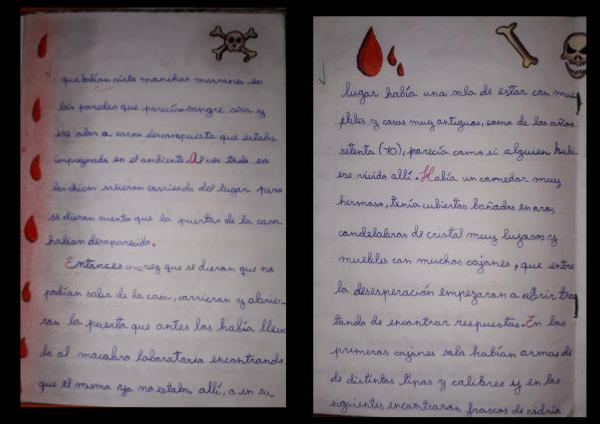 que habían visto manchas marrones en
las paredes que parecían sangre seca y
ese olor a carne descompuesta que estaba
impregnada en el ambiente. Al ver todo eso
los chicos salieron corriendo del lugar pero
se dieron cuenta que la puertas de la casa
habían desaparecido.
Entonces una vez que se dieron que no
podían salir de la casa, corrieron y abrie-
ron la puerta que antes los había lleva
do al macabro laboratorio encontrando
que el mismo ya no estaba allí, o en su
lugar había una sala de estar con mue
bles y cosas muy antiguas, como de los años
setenta (70), parecía como si alguien hubi
ese vivido allí. Había un comedor muy
hermoso, tenía cubiertos bañados en oro,
candelabros de cristal muy lujosos y
muebles con muchos cajones, que entre
la desesperación empezaron a abrir tra
tando de encontrar respuestas. En los
primeros cajones solo habían armas de
de distintos tipos y calibres y en los
siguientes encontraron frascos de vidrio